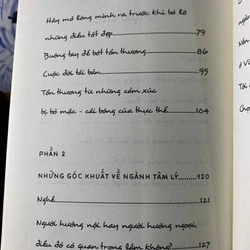 Hãy mở lòng mình ra trước khi bỏ lỡ
những điều tốt đẹp 79
Buông tay để bớt tổn thương 86
Cuộc đời tái bản 95
Tổn thương từ những cảm xúc
bị bỏ mặc - cái bóng của thực thể 104
PHẦN 2
NHỮNG GÓC KHUẤT VỀ NGÀNH TÂM LÝ 120
Nghề 121
Người hướng nội hay người hướng ngoại,
điều đó có quan trọng lắm không? 127